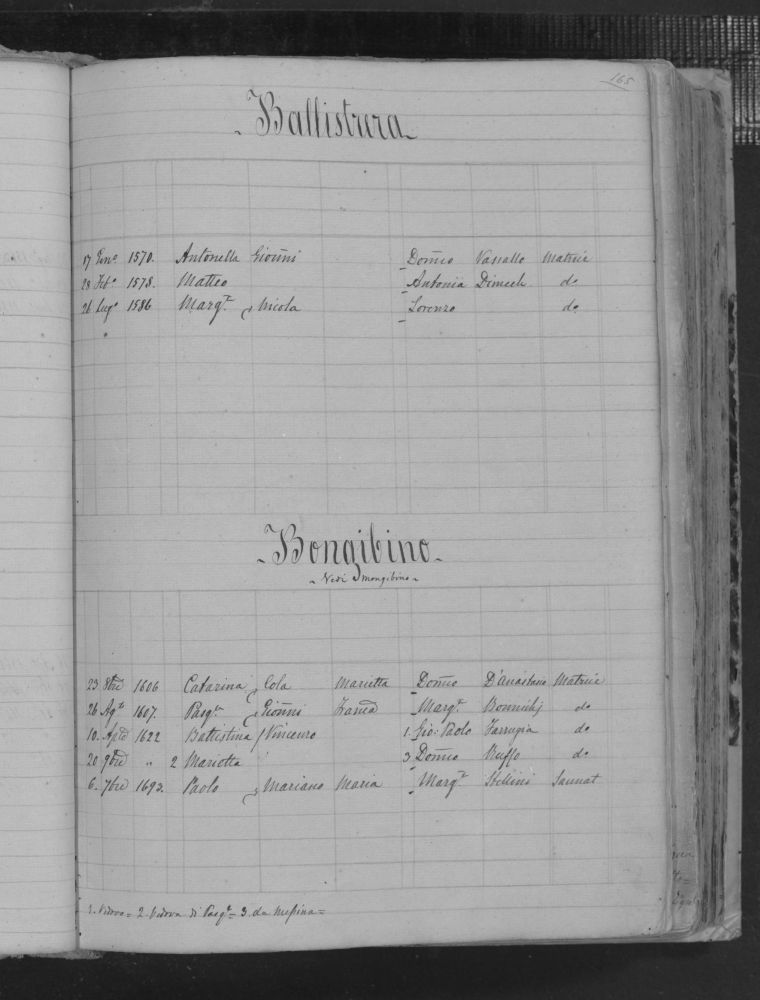 165
Ballistrera
17 Genº 1570. Antonella Gioñni Doñico Vassallo Matrice
28 Febº 1578. Matteo Antonia Dimech dº
26 Lugº 1586 Margta Nicola Lorenzo dº
Bongibino
Vedi Mongibino
23 8bre 1606 Catarina Cola Marietta Doñico D'Anastasio Matrice
26 Agto 1607. Pasqle Gioñni Margta dº
10. Aple 1622 Battistina Vincenzo 1. Gio: Paolo Farrugia dº
20 9bre " 2 Marietta 3 Doñico Ruffo dº
6. 7bre 1693. Paolo Mariano Maria Margta Stellini Sannat
1. Vedova = 2. Vedova di Pasqle = 3. da Messina =